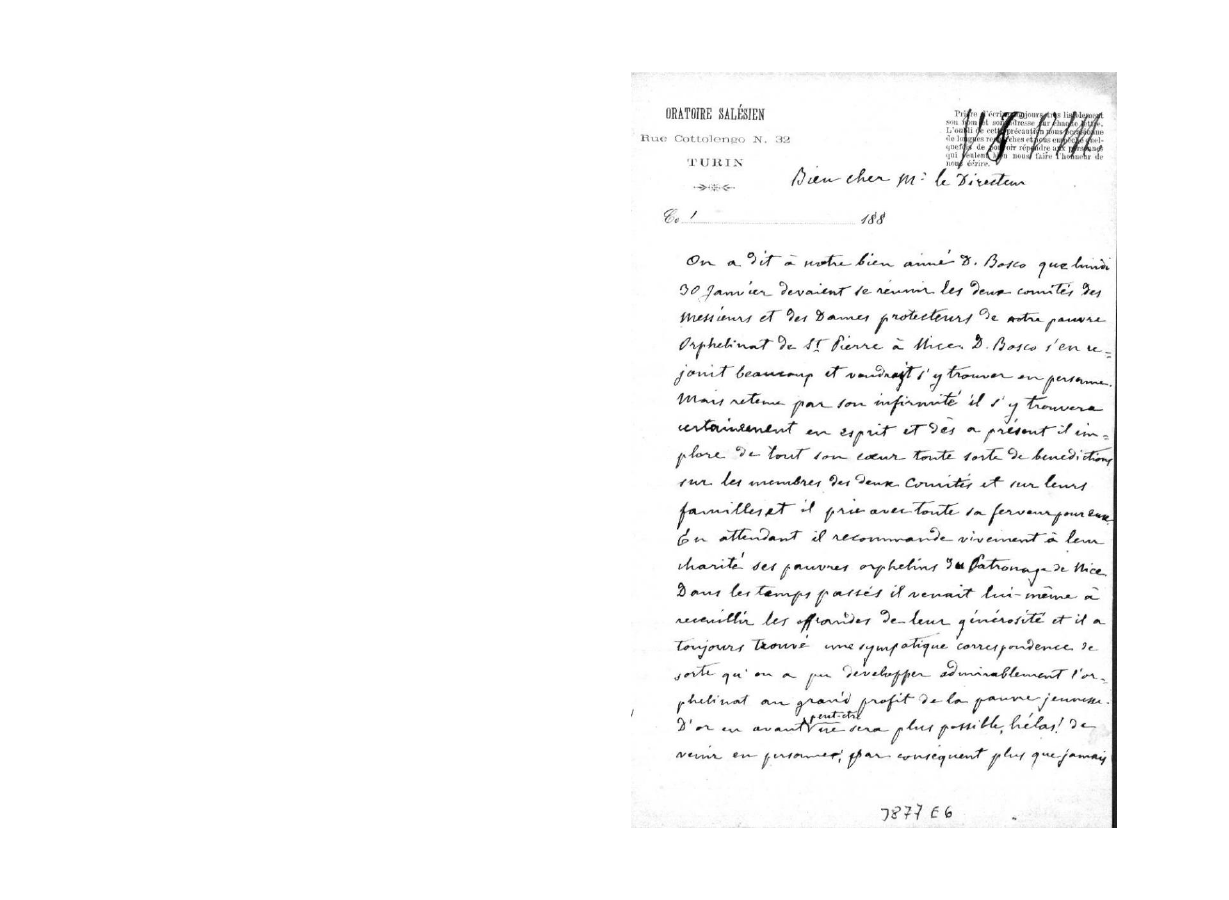 ORATOIRE SALÉSIEN
Rue Cottolengo N. 32
TURIN
Prière d'écrire toujours très lisiblement
son nom et son adresse sur chaque lettre.
L'oubli de cette précaution nous
de longues recherches et nous empêche quel-
quefois de pouvoir répondre aux personnes
qui veulent bien nous faire l'honneur de
nous écrire.
Bien cher Mr le Directeur
Ce 188
On a dit à notre bien aimé D. Bosco que lundi
30 Janvier devaient se réunir les deux comités des
Messieurs et des Dames protecteurs de notre pauvre
Orphelinat de St Pierre à Nice. D. Bosco s'en re=
jouit beaucoup et voudrait s'y trouver en personne.
Mais retenu par son infirmité il s'y trouvera
certainement en esprit et dès a présent il im=
plore de tout son cœur toute sorte de benedictions
sur les membres des deux Comités et sur leurs
familles et il prie avec toute sa ferveur pour eux.
En attendant il recommande vivement à leur
charité ses pauvres orphelins du Patronage de Nice
Dans les temps passés il venait lui-même à
recueillir les offrandes de leur générosité et il a
toujours trouvé une sympatique correspondence de
sorte qu'on a pu développer admirablement l'or=
phelinat au grand profit de la pauvre jeunesse.
D'or en avant peut etre ne sera plus possible, hélas! de
venir en personne, par consequent plus que jamais
7877 E6